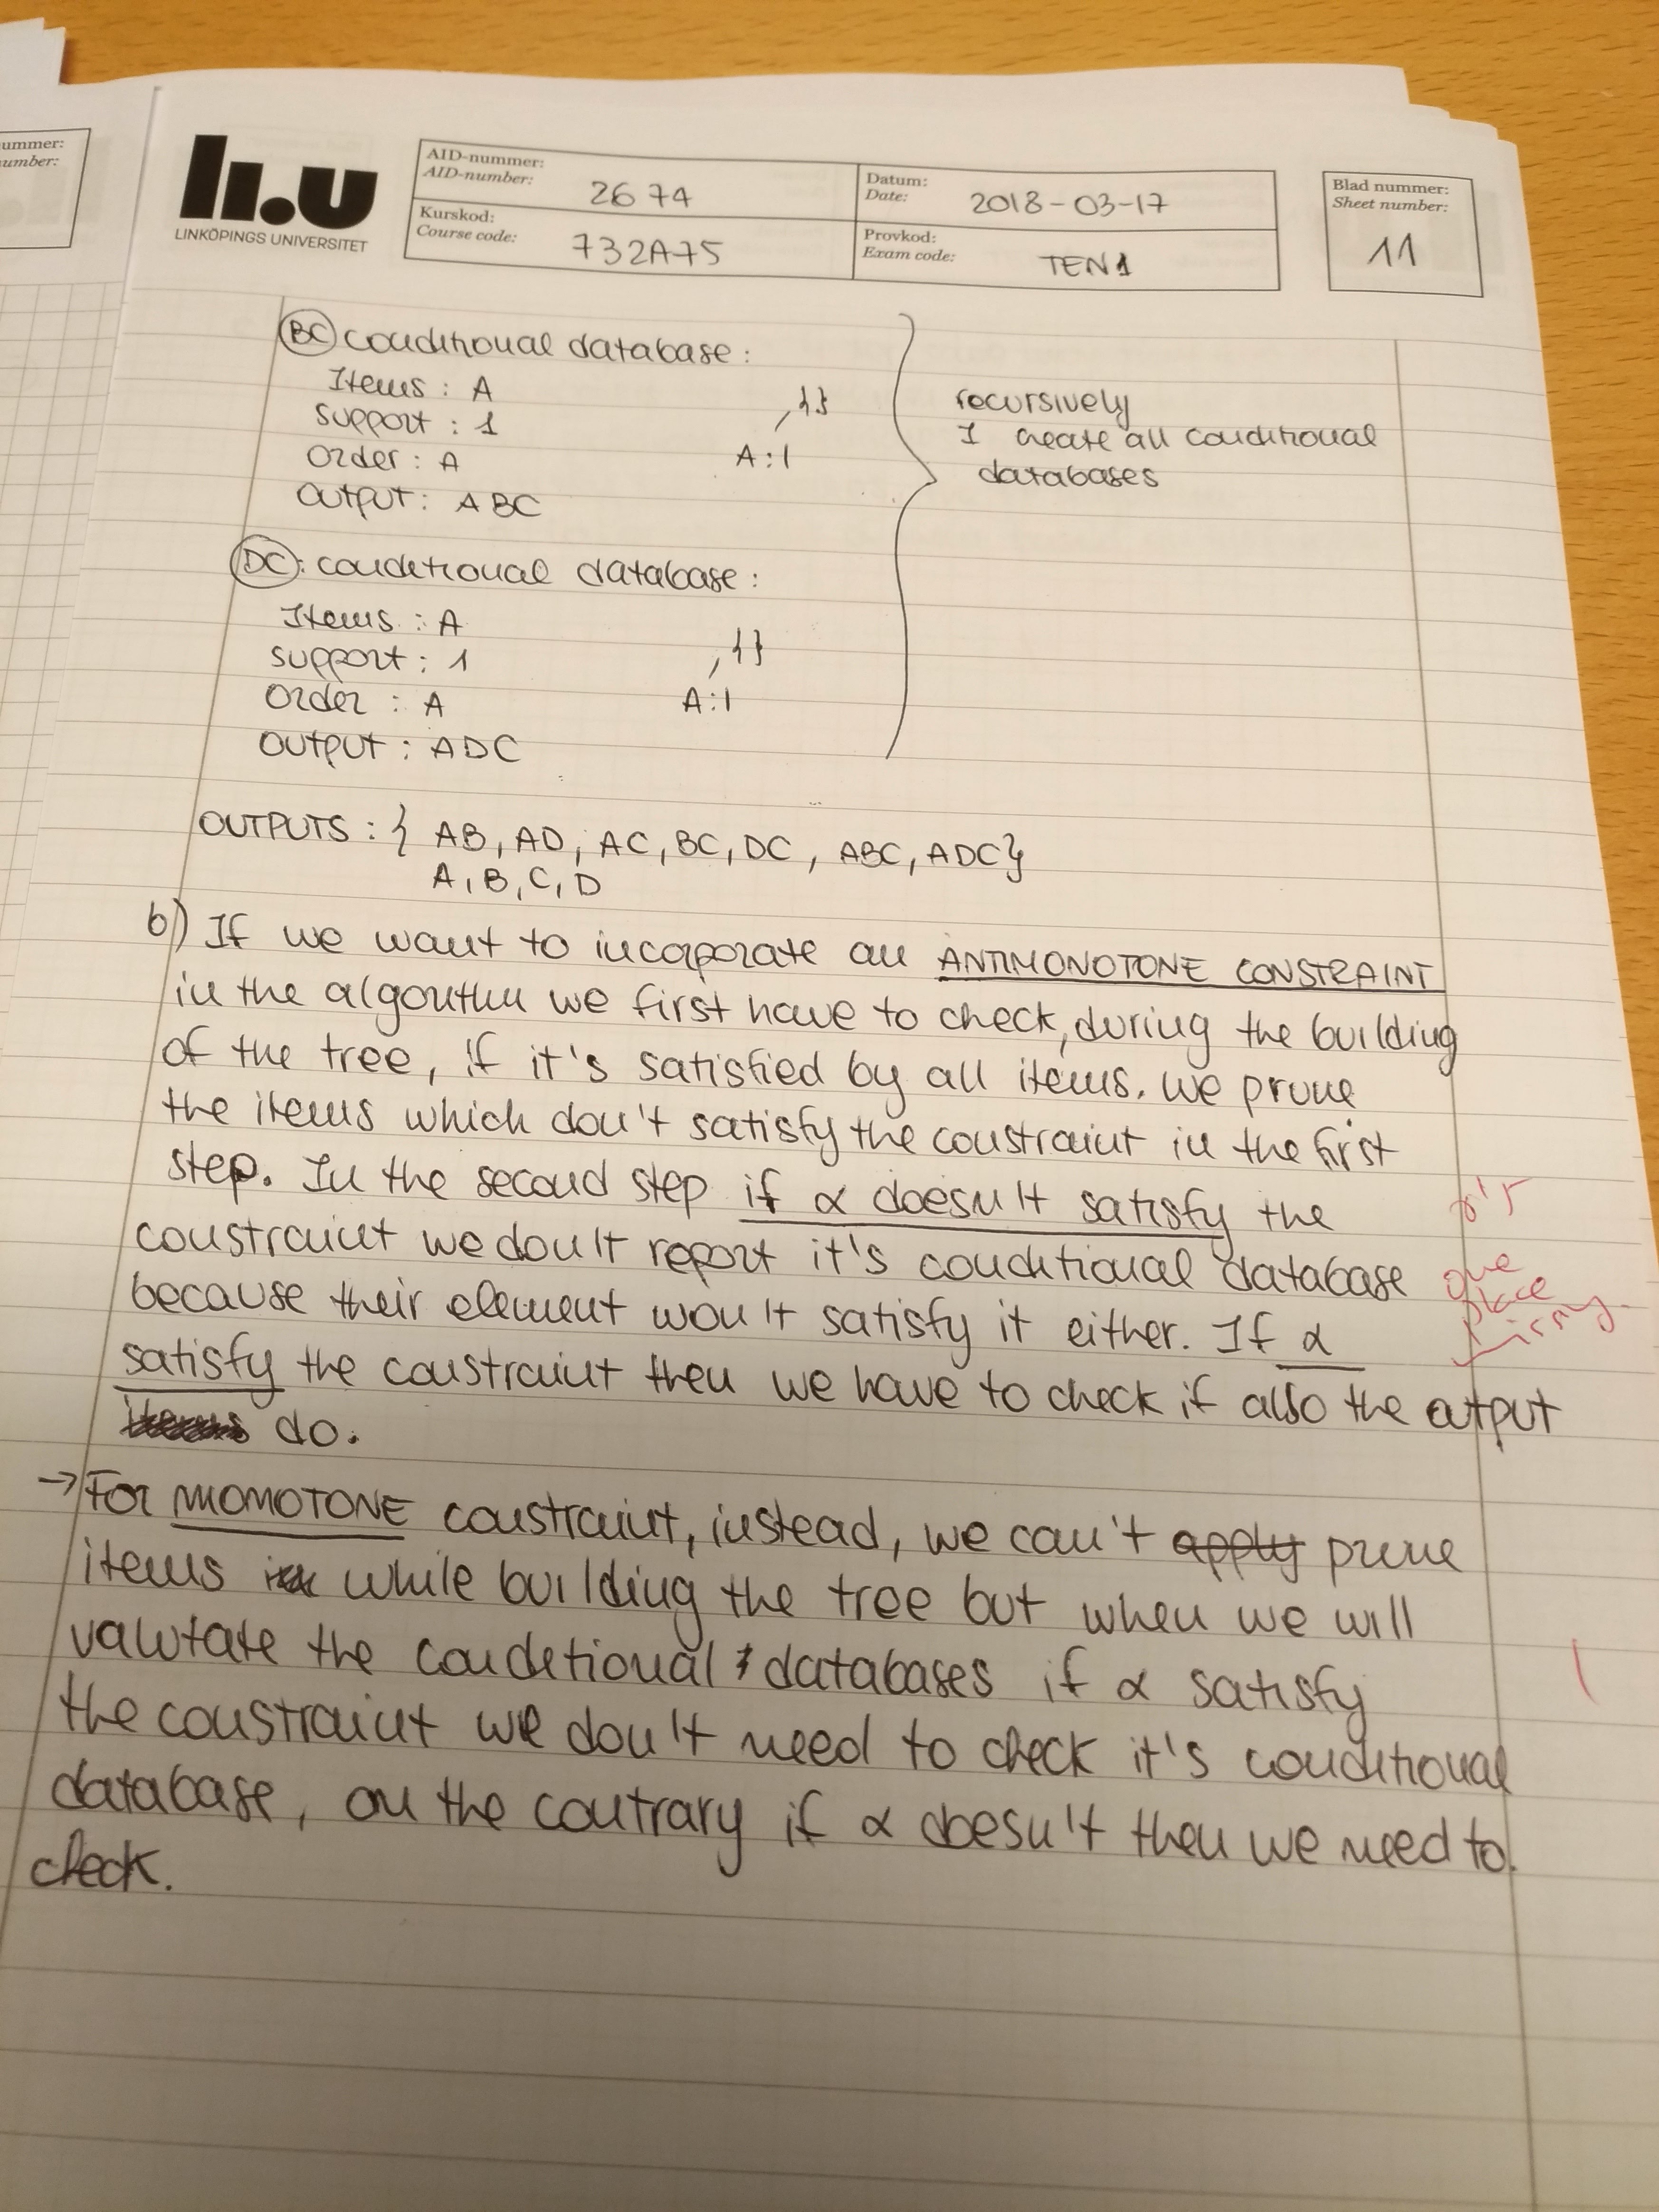 ummer:
umber:
li.u
LINKÖPINGS UNIVERSITET
AID-nummer:
AID-number: 2674
Datum:
Date: 2018-03-17
Kurskod:
Course code: 732A75
Provkod:
Exam code: TEN1
Blad nummer:
Sheet number:
11
BC conditional database:
Items: A
support: 1
{}
Order: A
A:1
Output: ABC
recursively
I create all conditional
databases
DC: conditional database:
Items: A
support: 1
{}
Order: A
A:1
Output: ADC
OUTPUTS: { AB, AD, AC, BC, DC, ABC, ADC}
A, B, C, D
b) If we want to incorporate an ANTIMONOTONE CONSTRAINT
in the algorithm we first have to check, during the building
of the tree, if it's satisfied by all items. we prune
the items which don't satisfy the constraint in the first
step. In the second step if α doesn't satisfy the
constraint we don't report it's conditional database
because their element won't satisfy it either. If α
satisfy the constraint then we have to check if also the output
do.
0'5
one
place
missing.
→ For MONOTONE constraint, instead, we can't apply prune
items while building the tree but when we will
valutate the conditional databases if α satisfy
the constraint we don't need to check it's conditional
database, on the contrary if α doesn't then we need to
check.
1